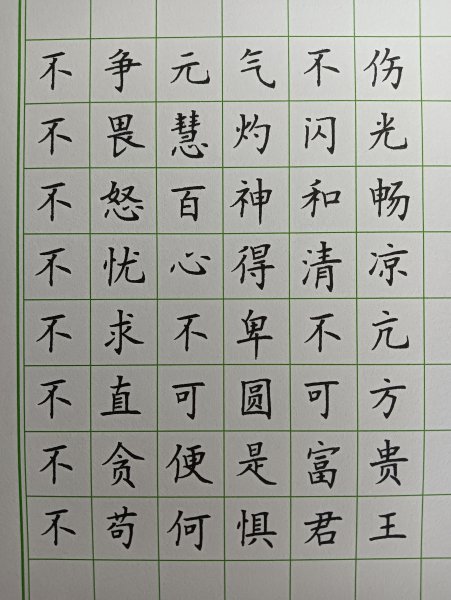 不争元气不伤
不畏慧灼闪光
不怒百神和畅
不忧心得清凉
不求不卑不亢
不直可圆可方
不贪便是富贵
不苟何惧君王